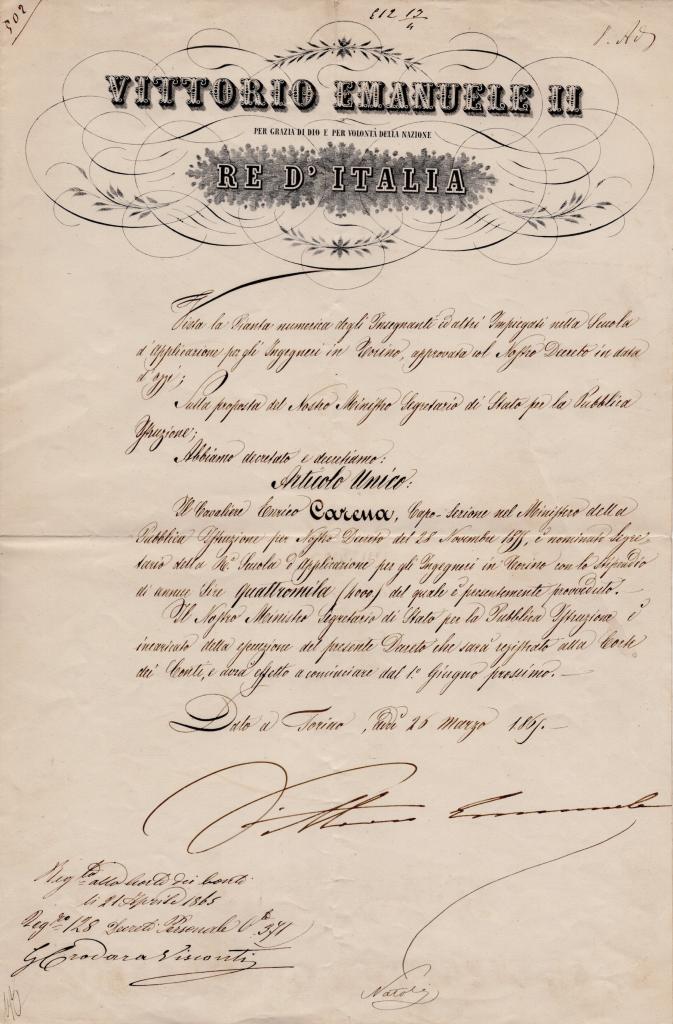 502
812 17/4
VITTORIO EMANUELE II
PER GRAZIA DI DIO E PER VOLONTÀ DELLA NAZIONE
RE D' ITALIA
Vista la Pianta numerica degli Insegnanti ed altri Impiegati nella Scuola
d'Applicazione per gli Ingegneri in Torino, approvata col Nostro Decreto in data
d'oggi;
Sulla proposta del Nostro Ministro Segretario di Stato per la Pubblica
Istruzione;
Abbiamo decretato e decretiamo:
Articolo Unico:
Il Cavaliere Enrico Carena, Capo-Sezione nel Ministero della
Pubblica Istruzione per Nostro Decreto del 28 Novembre, è nominato Segre-
tario della R.a Scuola d'Applicazione per gli Ingegneri in Torino con lo stipendio
di annue lire quattromila (4000) del quale è presentemente provveduto.-
Il Nostro Ministro Segretario di Stato per la Pubblica Istruzione è
incaricato della esecuzione del presente Decreto che sarà registrato alla Corte
dei Conti, e avrà effetto a cominciare dal 1.° Giugno prossimo.-
Dato a Torino, addì 26 marzo 1865.-
Vittorio Emanuele
Reg.to alla Corte dei Conti
li 21 Aprile 1865
Reg.ro 128 Decreti Personale C.e 371
G Crodara Visconti
Natoli